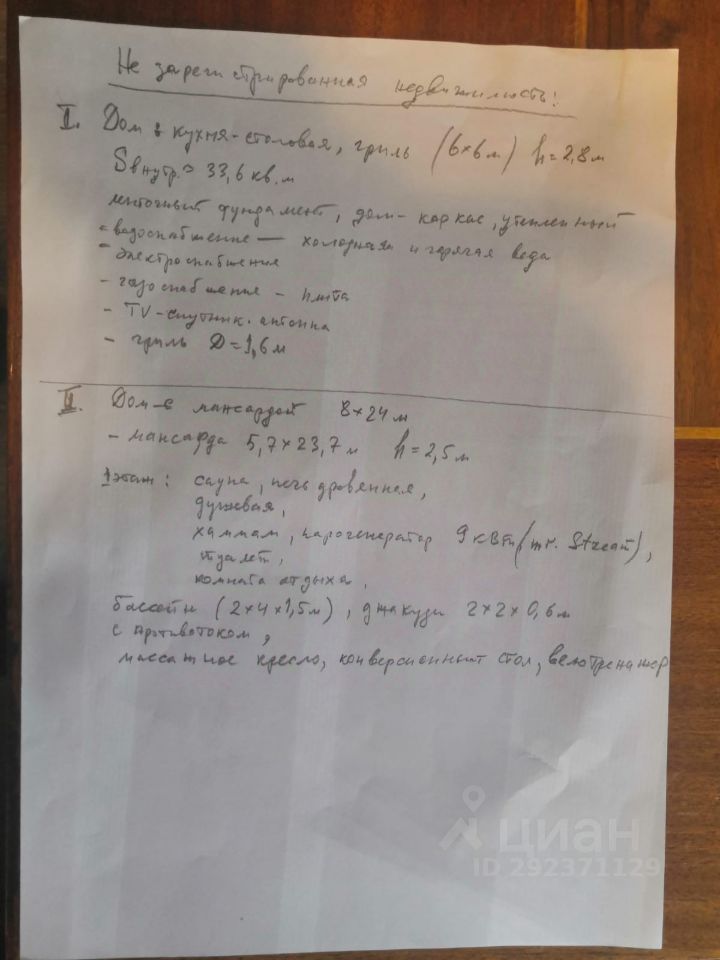 Не зарегистрированная недвижимость:
I. Дом в кухня-столовая, гриль (6×6м) h=2,8м
Sвнутр.≈ 33,6 кв.м
ленточный фундамент, дом-каркас, утепленный
- водоснабжение — холодная и горячая вода
- электроснабжения
- газоснабжение - плита
- TV-спутник. антонна
- гриль D=1,6м
II. Дом-с мансардой 8×24м
- мансарда 5,7×23,7м h=2,5м
1этаж: сауна, печь дровенная,
душевая,
хаммам, парогенератор 9кВт (mr. Steam),
туалет,
комната отдыха,
бассейн (2×4×1,5м), джакузи 2×2×0,6м
с противотоком,
массажное кресло, конверсионный стол, велотренажер
циан
ID 292371129